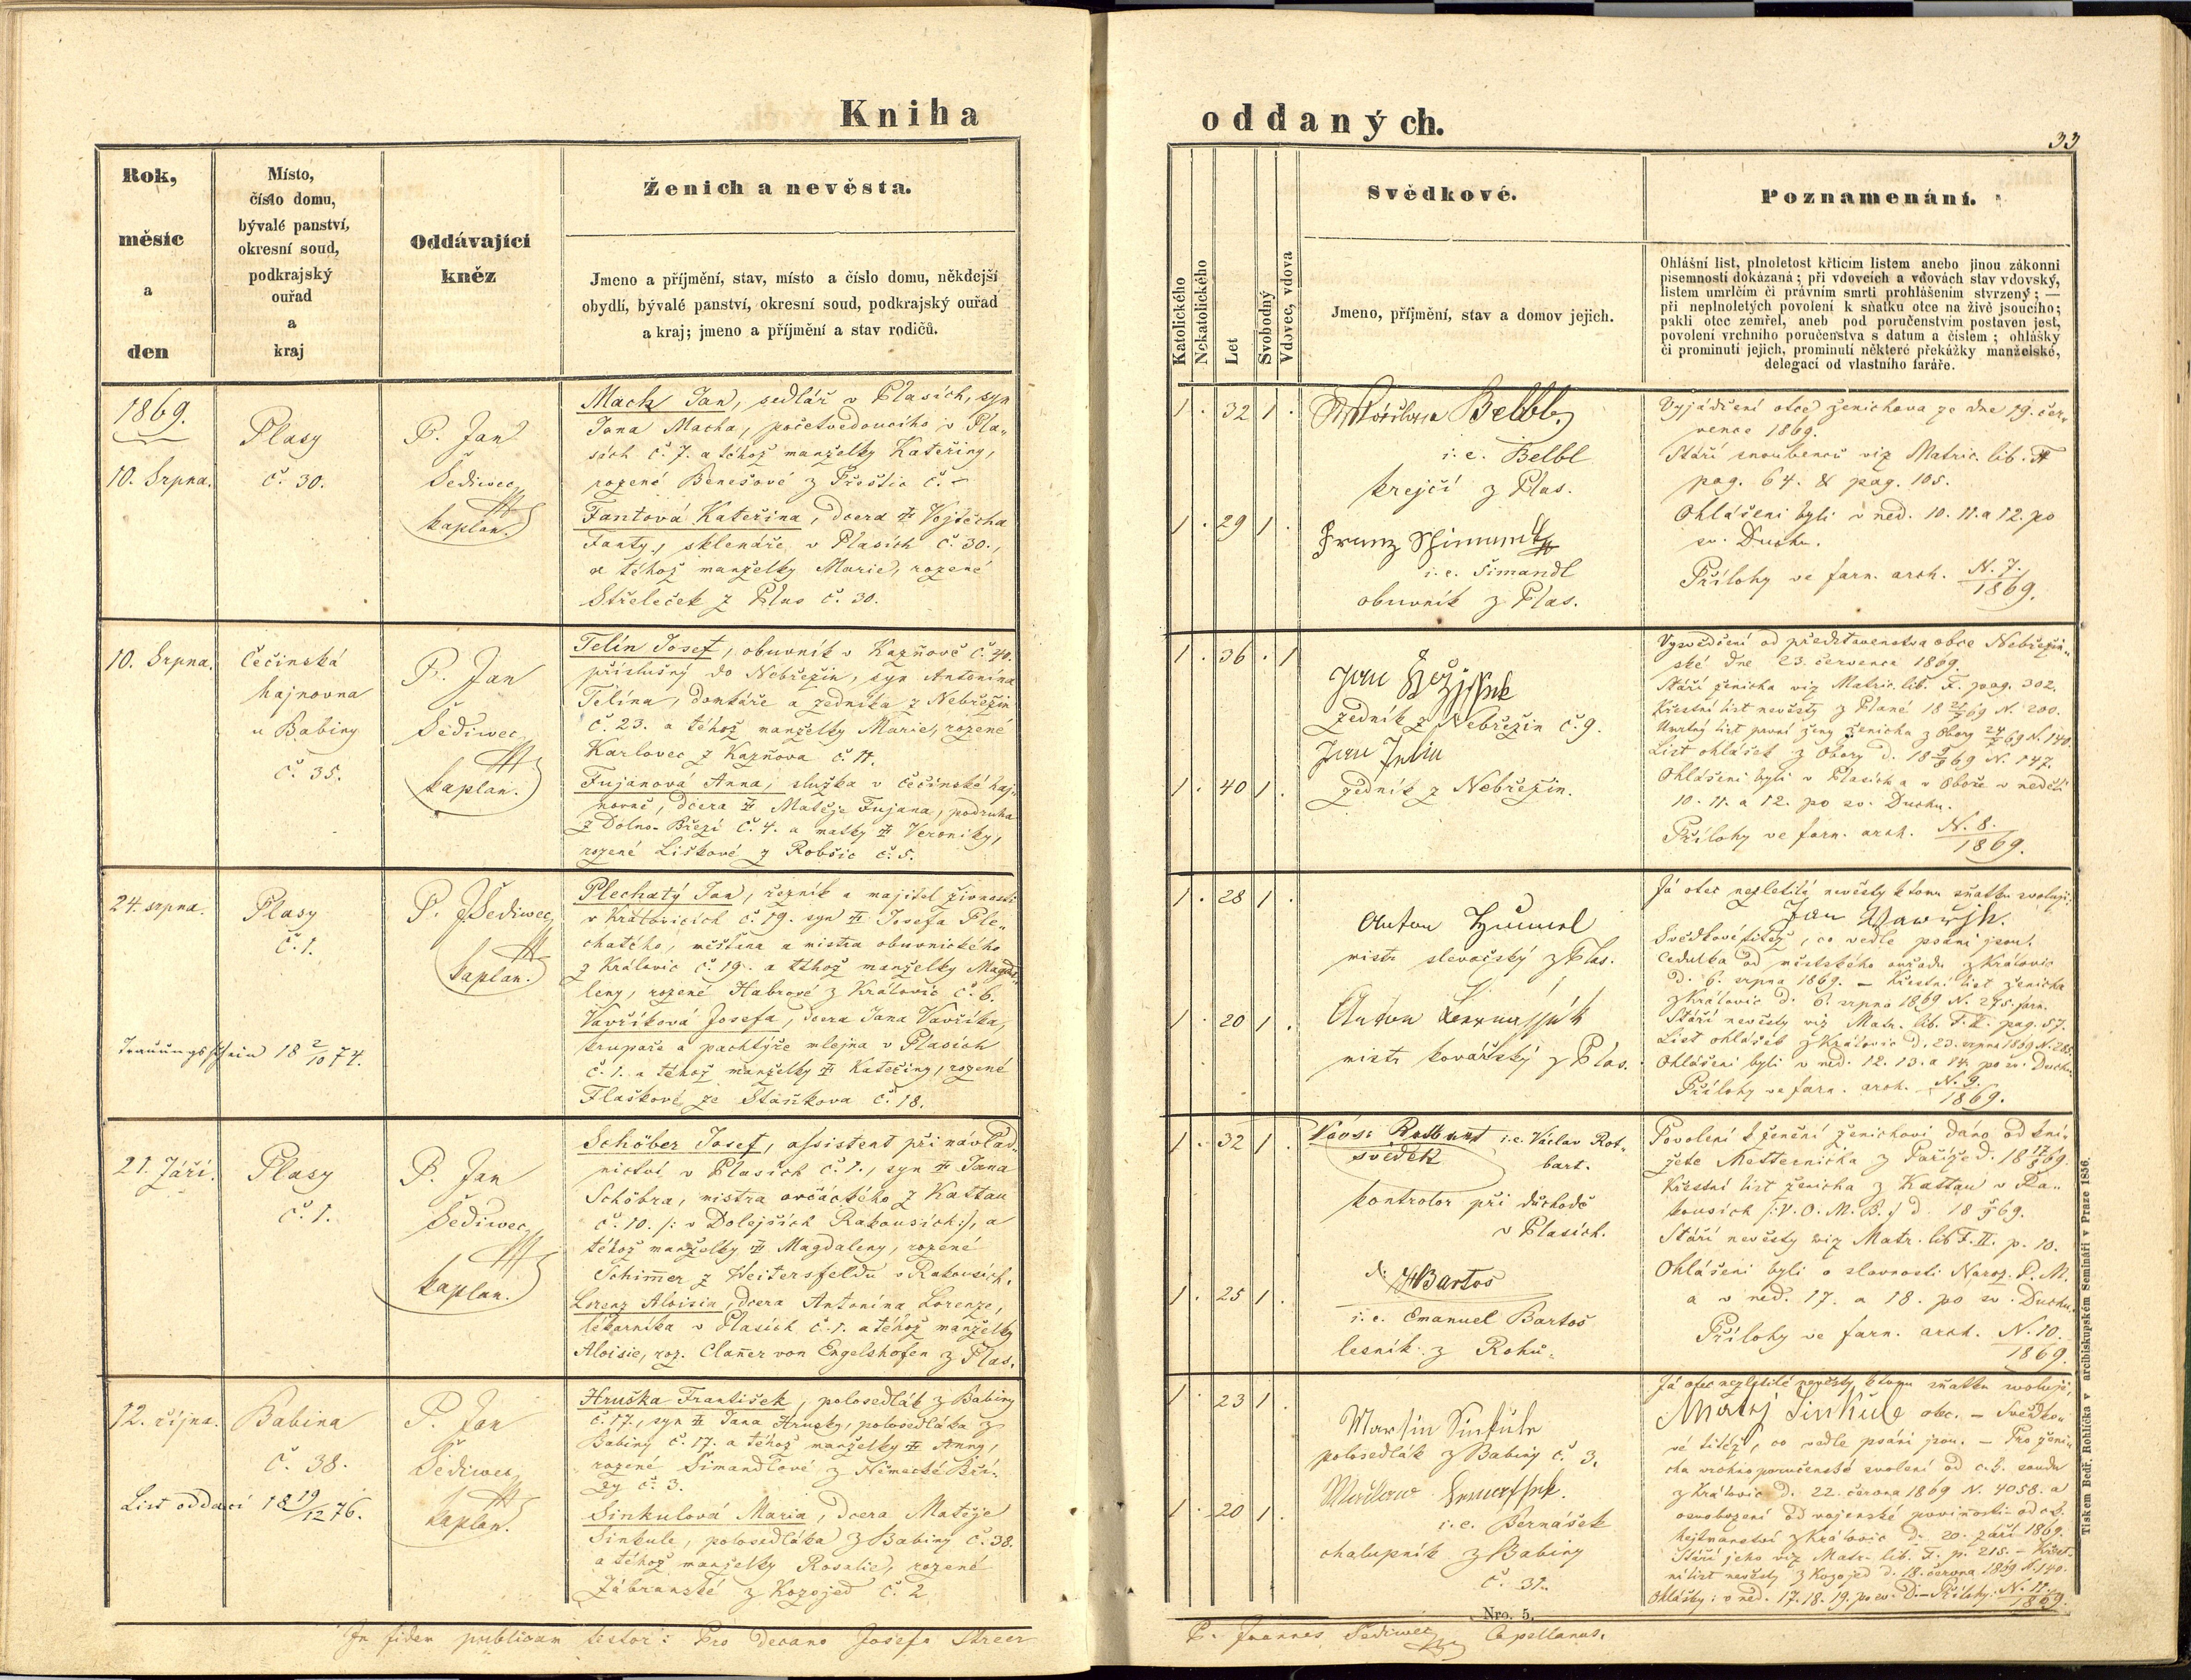 Kniha
oddaných.
33
Rok,
měsíc
a
den
Místo,
číslo domu,
bývalé panství,
okresní soud,
podkrajský
ouřad
a
kraj
Oddávající
kněz
Ženich a nevěsta.
Jmeno a příjmění, stav, místo a číslo domu, někdejší
obydlí, bývalé panství, okresní soud, podkrajský ouřad
a kraj; jmeno a příjmění a stav rodičů.
Katolického
Nekatolického
Let
Svobodný
Vdovec, vdova
Svědkové.
Jmeno, příjmění, stav a domov jejich.
Poznamenání.
Ohlášní list, plnoletost křticím listem anebo jinou zákonní
písemností dokázaná; při vdovcích a vdovách stav vdovský,
listem umrlčím či právním smrti prohlášením stvrzený; —
při neplnoletých povolení k sňatku otce na živě jsoucího;
pakli otec zemřel, aneb pod poručenstvím postaven jest,
povolení vrchního poručenstva s datum a číslem; ohlášky
či prominutí jejich, prominutí některé překážky manželské,
delegací od vlastního faráře.
1869.
10. Srpna.
Plasy
č. 30.
P. Jan
Šediwec
kaplan.
Mach Jan, sedlář v Plasích, syn
Jana Macha, početvedoucího v Pla-
sích č. 7. a téhož manželky Kateřiny,
rozené Benešové z Přeštic č. –
Fantová Kateřina, dcera Vojtěcha
Fanty, sklenáře v Plasích č. 30.,
a téhož manželky Marie, rozené
Střeleček z Plas č. 30.
1. 32 1.
Belbl
i. e. Belbl
krejčí z Plas.
1. 29 1.
Franz
i. e. Šimandl
obuvník z Plas.
Vyjádření otce ženichova ze dne 19. čer-
vence 1869.
Stáří snoubenců viz Matric. lib. F
pag. 64. & pag. 105.
Ohlášeni byli v ned. 10. 11. a 12. po
sv. Duchu.
Přílohy ve farn. arch. N. 7. / 1869.
10. Srpna.
Čečinská
hajnovna
u Babiny
č. 35.
P. Jan
Šediwec
kaplan.
Telín Josef, obuvník v Kazňově č. 40.
příslušný do Nebřežin, syn Antonína
Telína, domkáře a zedníka z Nebřežin
č. 23. a téhož manželky Marie, rozené
Karlovec z Kazňova č. 11.
Fujanová Anna, služka v čečínské haj-
novně, dcera Matěje Fujana, podruha
z Dolno-Březí č. 4. a matky Veroniky,
rozené Liškové z Robšic č. 5.
1. 36 . 1
Jan
zedník z Nebřežin č. 9.
Jan
1. 40 1.
zedník z Nebřežin.
Vysvědčení od představenstva obce Nebřežin-
ské dne 23. července 1869.
Stáří ženicha viz Matric. lib. F. pag. 302.
Křestní list nevěsty z Plané 18 21/7 69 N. 200.
Umrtný list první ženy ženicha z Obory 24/7 69 N. 140.
List ohlášek z Obory d. 18 9/8 69 N. 147.
Ohlášeni byli v Plasích a v Oboře v neděli
10. 11. a 12. po sv. Duchu.
Přílohy ve farn. arch. N. 8. / 1869.
24. srpna.
Plasy
č. 1.
P. J. Šediwec
kaplan.
Trauungsschein 18 2/10 74.
Plechatý Jan, řezník a majitel živnosti
v Kralovicích č. 19. syn Josefa Ple-
chatého, měšťana a mistra obuvnického
z Kralovic č. 19. a téhož manželky Magda-
leny, rozené Habrové z Kralovic č. 6.
Vavříková Josefa, dcera Jana Vavříka,
krupaře a pachtýře mlejna v Plasích
č. 1. a téhož manželky Kateřiny, rozené
Flaškové ze Staňkova č. 18.
1. 28 1.
Anton
mistr slevačský z Plas.
1. 20 1.
Anton
mistr kovářský z Plas.
Já otec nezletilé nevěsty k tomu sňatku svoluji:
Jan Wawřjk.
Svědkové titéž, co vedle psáni jsou.
Cedulka od městského ouřadu z Kralovic
d. 6. srpna 1869. – Křestní list ženicha
z Kralovic d. 6. srpna 1869 N. 275. farn.
Stáří nevěsty viz Matr. lib. F. II. pag. 57.
List ohlášek z Kralovic d. 23. srpna 1869 N. 285.
Ohlášeni byli v ned. 12. 13. a 14. po sv. Duchu.
Přílohy ve farn. arch. N. 9. / 1869.
21. Září.
Plasy
č. 1.
P. Jan
Šediwec
kaplan.
Schöber Josef, assistent při návlad-
nictví v Plasích č. 1., syn Jana
Schöbra, mistra ovčáckého z Kattau
č. 10. /: v Dolejších Rakousích :/, a
téhož manželky Magdaleny, rozené
Schimmer z Weitersfeldu v Rakousích.
Lorenz Aloisia, dcera Antonína Lorenze,
lékarníka v Plasích č. 1. a téhož manželky
Aloisie, roz. Clanner von Engelshofen z Plas.
1. 32 1.
i. e. Václav Rot-
bart.
svědek
kontrolor při důchodě
v Plasích.
1. 25 1.
Bartos
i. e. Emanuel Bartoš
lesník z Rohů.
Povolení k ženění ženichovi dáno od kní-
žete Metternicha z Paříže d. 18 17/8 69.
Křestní list ženicha z Kattau v Ra-
kousích /: V. O. M. B. :/ d. 18 5/9 69.
Stáří nevěsty viz Matr. lib F. II. p. 10.
Ohlášeni byli o slavnosti Naroz. P. M.
a v ned. 17. a 18. po sv. Duchu.
Přílohy ve farn. arch. N. 10. / 1869.
12. října.
Babina
č. 38.
P. Jan
Šediwec
kaplan.
List oddací 18 19/12 76.
Hruška František, polosedlák z Babiny
č. 17., syn Jana Hrušky, polosedláka z
Babiny č. 17. a téhož manželky Anny,
rozené Šimandlové z Německé Bří-
zy č. 3.
Sinkulová Maria, dcera Matěje
Sinkule, polosedláka z Babiny č. 38.
a téhož manželky Rosalie, rozené
Zábranské z Kozojed č. 2.
1. 23 1.
Martin Sinkule
polosedlák z Babiny č. 3.
1. 20 1.
i. e. Bernášek
chalupník z Babiny
č. 31.
Já otec nezletilé nevěsty k tomu sňatku svoluji:
Matěj Sinkule otec. – Svědko-
vé titéž, co vedle psáni jsou. – Pro ženi-
cha vrchnoporučenské svolení od c. k. soudu
z Kralovic d. 22. června 1869 N. 4058. a
osvobození od vojenské povinnosti od c. k.
hejtmanství z Kralovic d. 20. září 1869.
Stáří jeho viz Matr. lib. F. p. 218. – Křest-
ní list nevěsty z Kozojed d. 18. června 1869 N. 140.
Ohlášky: v ned. 17. 18. 19. po sv. D. – Přílohy: N. 11. / 1869.
In fidem publicam testor: Pro decano Josefo
Nro. 5.
P. Joannes Šediwec Capellanus.
Tiskem Bedř. Rohlíčka v arcibiskupském Semináři v Praze 1856.